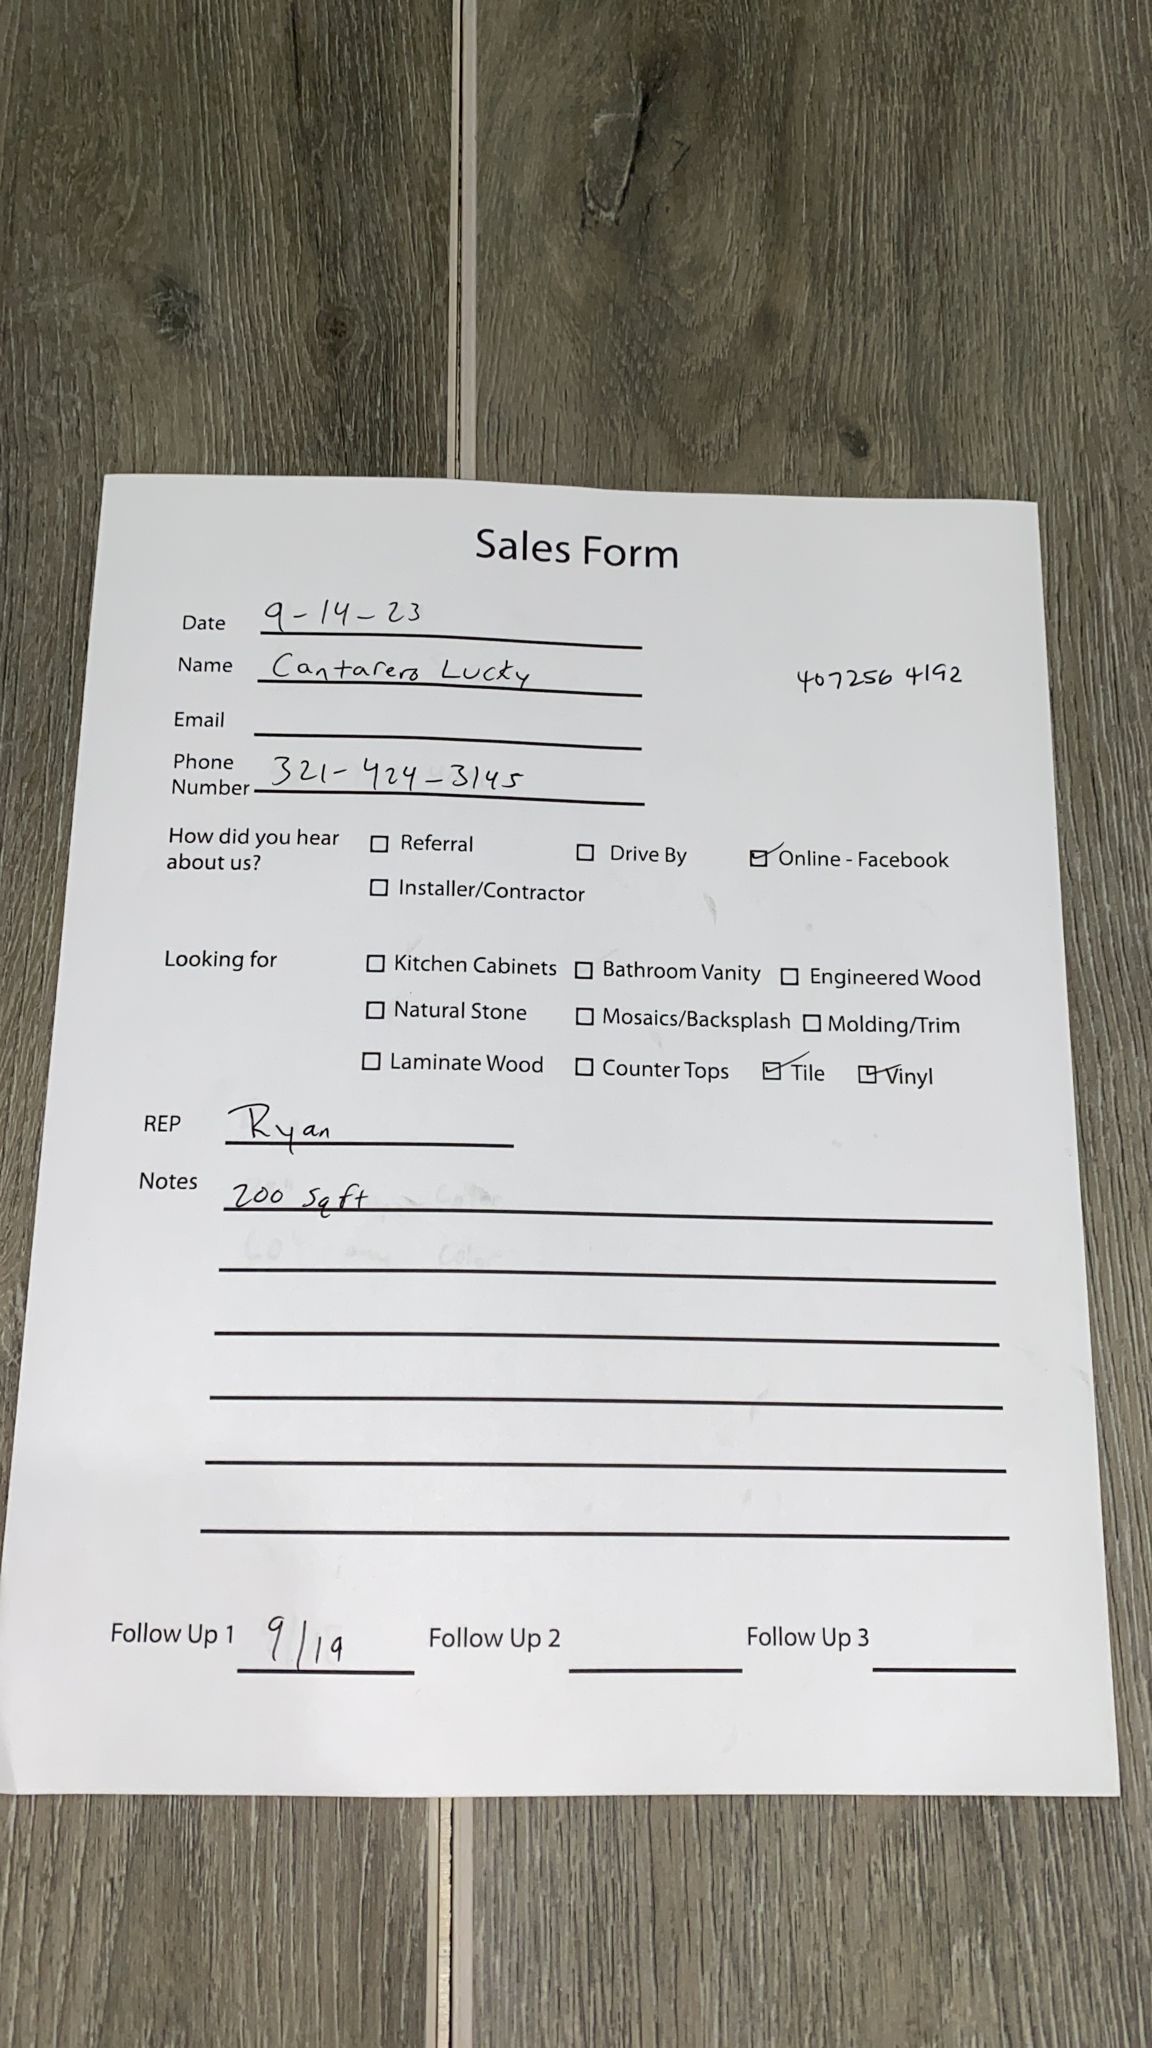 Sales Form
Date 9-14-23
Name Cantarero Lucky 407256 4192
Email
Phone Number 321-424-3145
How did you hear about us? ☐ Referral ☐ Drive By ☑ Online - Facebook
☐ Installer/Contractor
Looking for ☐ Kitchen Cabinets ☐ Bathroom Vanity ☐ Engineered Wood
☐ Natural Stone ☐ Mosaics/Backsplash ☐ Molding/Trim
☐ Laminate Wood ☐ Counter Tops ☑ Tile ☑ Vinyl
REP Ryan
Notes 200 sqft
Follow Up 1 9/19 Follow Up 2 Follow Up 3